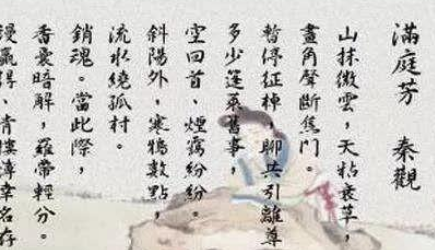 滿庭芳 秦觀
山抹微雲，天粘衰草，
畫角聲斷焦門。
暫停征棹，聊共引離尊
多少蓬萊舊事，
空回首、煙靄紛紛。
斜陽外，寒鴉數點，
流水繞孤村。
銷魂。當此際，
香囊暗解，羅帶輕分。
漫贏得、青樓薄幸名存